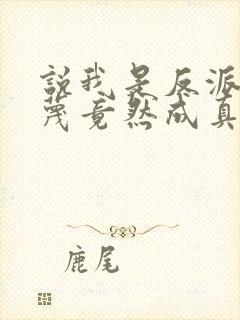 說我是反派
蔑竟然成真
鹿尾